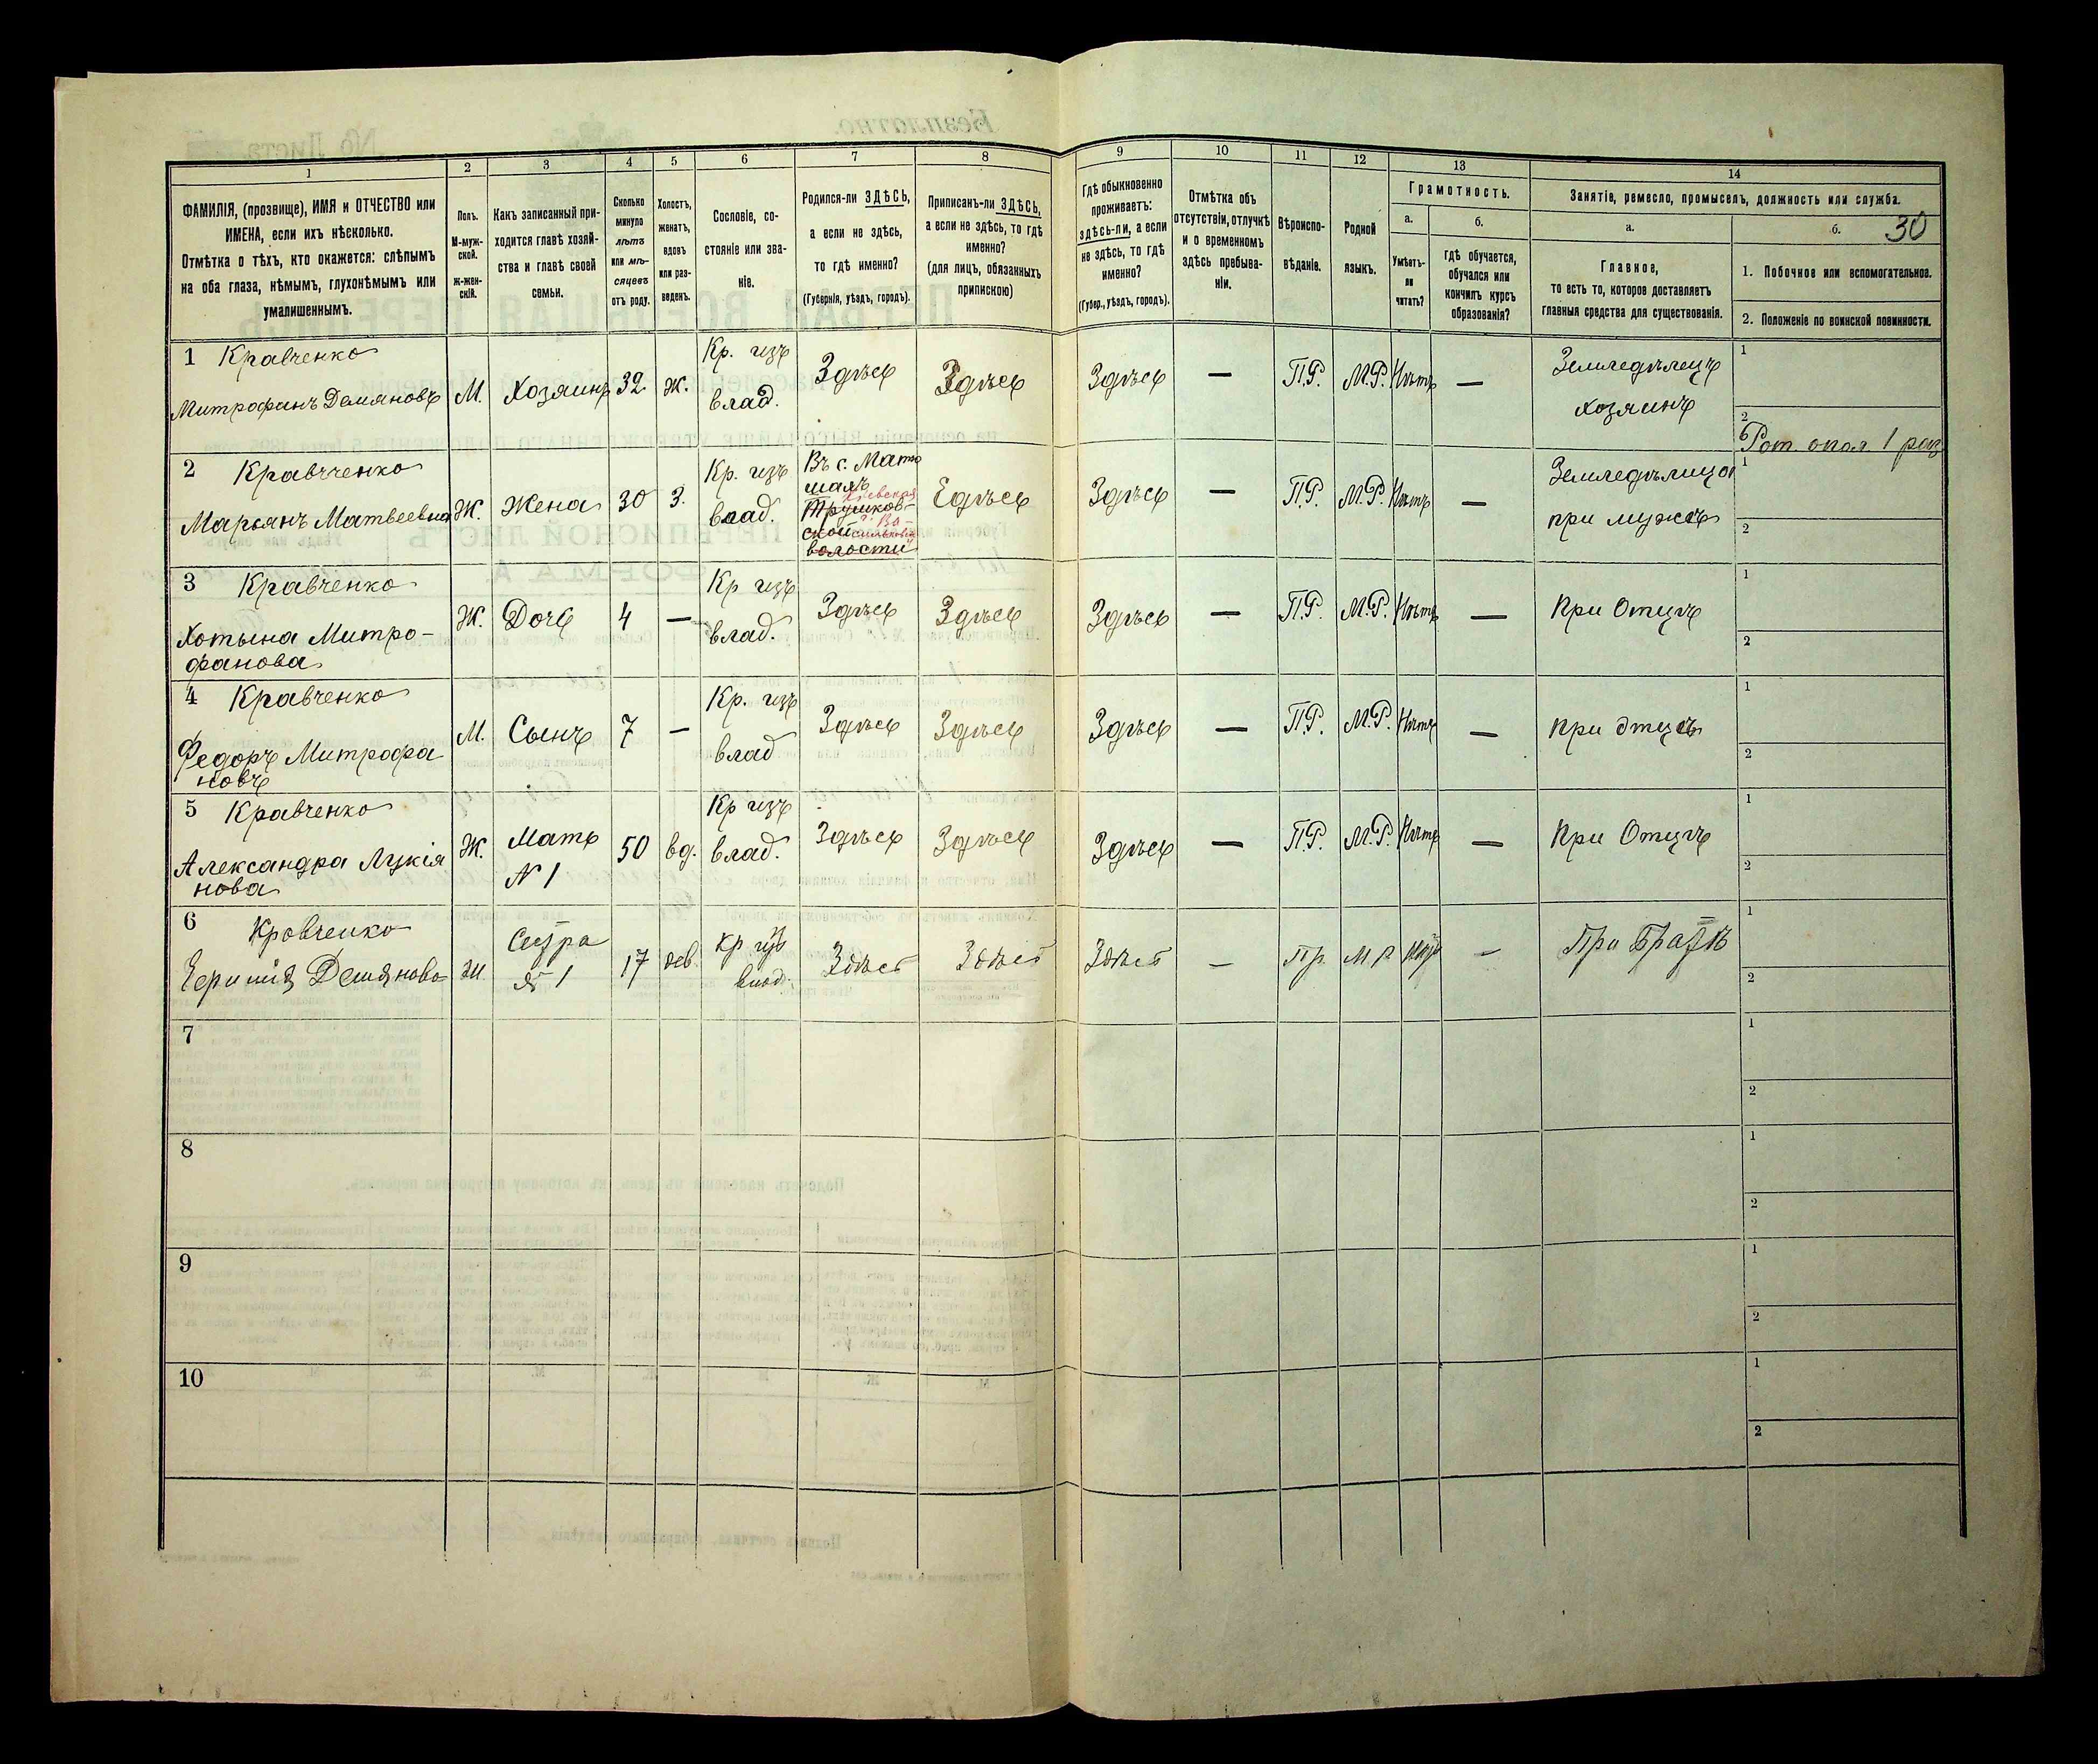 Безплатно.
№ Листа
1
2
3
4
5
6
7
8
9
10
11
12
13
14
ФАМИЛІЯ, (прозвище), ИМЯ и ОТЧЕСТВО или
ИМЕНА, если ихъ нѣсколько.
Отмѣтка о тѣхъ, кто окажется: слѣпымъ
на оба глаза, нѣмымъ, глухонѣмымъ или
умалишеннымъ.
Полъ.
М-муж-
ской.
Ж-жен-
скій.
Какъ записанный при-
ходится главѣ хозяй-
ства и главѣ своей
семьи.
Сколько
минуло
лѣтъ
или мѣ-
сяцевъ
отъ роду.
Холостъ,
женатъ,
вдовъ
или раз-
веденъ.
Сословіе, со-
стояніе или зва-
ніе.
Родился-ли ЗДѢСЬ,
а если не здѣсь,
то гдѣ именно?
(Губернія, уѣздъ, городъ).
Приписанъ-ли ЗДѢСЬ,
а если не здѣсь, то гдѣ
именно?
(для лицъ, обязанныхъ
припискою)
Гдѣ обыкновенно
проживаетъ:
здѣсь-ли, а если
не здѣсь, то гдѣ
именно?
(Губер., уѣздъ, городъ).
Отмѣтка объ
отсутствіи, отлучкѣ
и о временномъ
здѣсь пребыва-
ніи.
Вѣроиспо-
вѣданіе.
Родной
языкъ.
Грамотность.
а.
Умѣетъ-
ли
читать?
б.
гдѣ обучается,
обучался или
кончилъ курсъ
образованія?
Занятіе, ремесло, промыселъ, должность или служба.
а.
Главное,
то есть то, которое доставляетъ
главныя средства для существованія.
б.
30
1. Побочное или вспомогательное.
2. Положеніе по воинской повинности.
1 Кравченко
Митрофанъ Демяновъ
М.
Хозяинъ
32
ж.
Кр. изъ
влад.
Здѣсь
Здѣсь
Здѣсь
—
П.Р.
М.Р.
Нѣтъ
—
Земледѣлецъ
хозяинъ
1
2
опол. 1 раз
2 Кравченко
Марьянъ Матвеевна
Ж.
Жена
30
З.
Кр. изъ
влад.
Въ с. Матю
шахъ
Трушков-
ской
волости
Здѣсь
Здѣсь
—
П.Р.
М.Р.
Нѣтъ
—
Земледѣлица
при мужѣ
1
2
3 Кравченко
Хотына Митро-
фанова
Ж.
Дочь
4
—
Кр изъ
влад.
Здѣсь
Здѣсь
Здѣсь
—
П.Р.
М.Р.
Нѣтъ
—
При Отцѣ
1
2
4 Кравченко
Федоръ Митрофа
новъ
М.
Сынъ
7
—
Кр. изъ
влад
Здѣсь
Здѣсь
Здѣсь
—
П.Р.
М.Р.
Нѣтъ
—
при отцѣ
1
2
5 Кравченко
Александра Лукія
нова
Ж.
Мать
N 1
50
вд.
Кр изъ
влад.
Здѣсь
Здѣсь
Здѣсь
—
П.Р.
М.Р.
Нѣтъ
—
При Отцѣ
1
2
6 Кравченко
Демянова
Ж
Сестра
№ 1
17
дев.
Кр изъ
влад.
Здѣсь
Здѣсь
Здѣсь
—
Пр.
М Р
Нѣтъ
—
При Братѣ
1
2
7
1
2
8
1
2
9
1
2
10
1
2